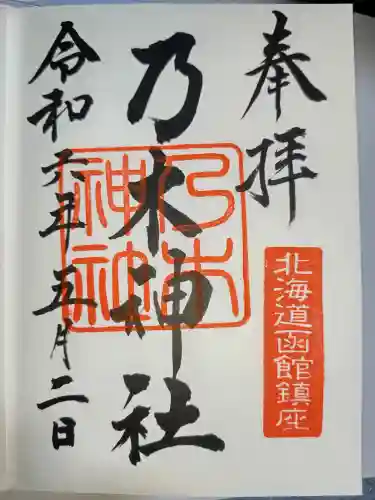 奉拝
北海道函館鎮座
乃木神社
乃木神社
令和六年五月二日